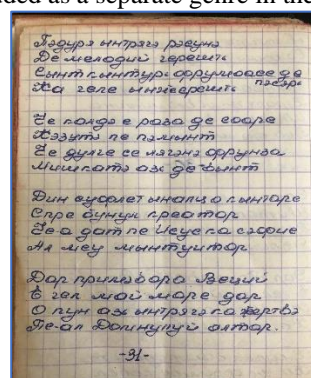 ded as a separate genre in the
Пэдуря ынтрягэ рэсунэ
Де мелодий черешть
Сынт кынтурь фрумоасе де пэсэрь
Ка челе ынжерешть
Че калдэ е раза де соаре
Кэзутэ пе пэмынт
Че дулче се лягэнэ фрунза
Мишкатэ азь де вынт
Дин суфлет ыналц о кынтаре
Спре бунул креатор
Че-а дат пе Исус ка сэ фие
Ал меу мынтуитор
Дар примэвара Веций
Е чел май маре дар
О пун азь ынтрягэ ка жертвэ
Пе-ал Домнулуй алтар.
-31-